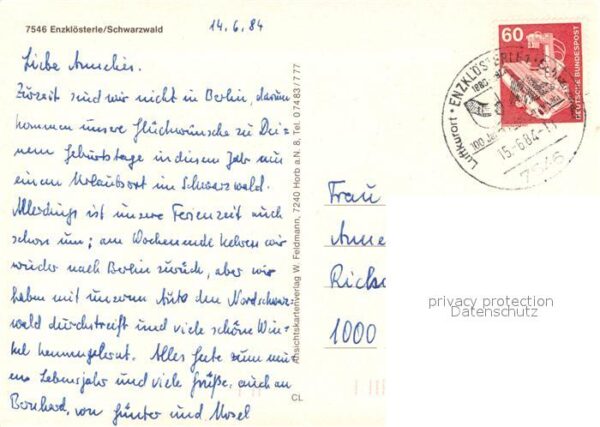 7546 Enzklösterle/Schwarzwald
14.6.84
Liebe
Zurzeit sind wir nicht in Berlin, darum
kommen unsere Glückwünsche zu Dei-
nem Geburtstage in diesem Jahr aus
einem Urlaubsort im Schwarzwald.
Allerdings ist unsere Ferienzeit auch
schon um; am Wochenende kehren wir
wieder nach Berlin zurück, aber wir
haben mit unserem Auto den Nordschwarz-
wald durchstreift und viele schöne Win-
kel kennengelernt. Alles Gute zum neu-
en Lebensjahr und viele Grüße, auch an
Bernhard, von Günter und
Ansichtskartenverlag W. Feldmann, 7240 Horb a.N. 8, Tel. 07483/777
CL
60
DEUTSCHE BUNDESPOST
Luftkurort · ENZKLÖSTERLE
100
15.-6.84-11
7546
Frau
Anne
1000
privacy protection
Datenschutz